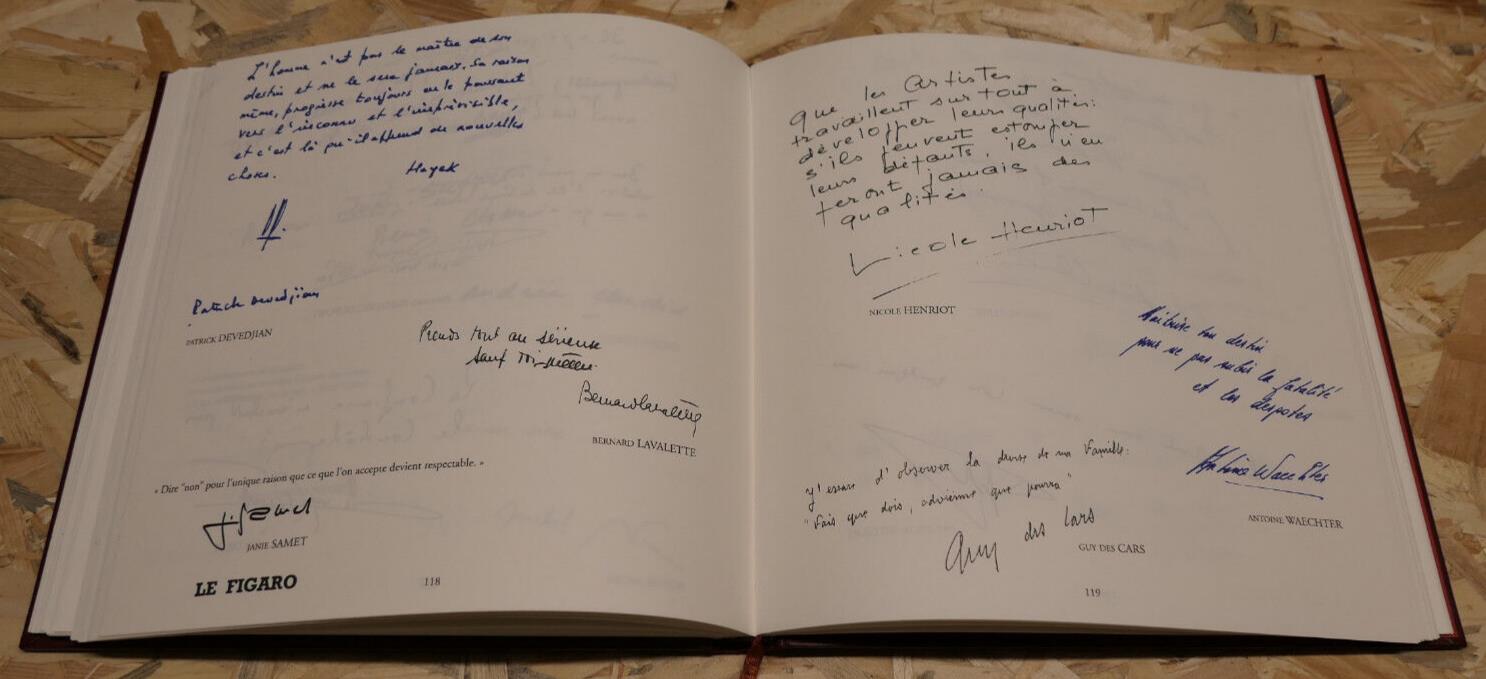 L'homme n'est pas le maître de son
destin et ne le sera jamais. Sa raison
même, progresse toujours en le poussant
vers l'inconnu et l'imprévisible,
et c'est là qu'il apprend de nouvelles
choses.
Hayek
Patrick Devedjian
PATRICK DEVEDJIAN
Prends tout au sérieux
sauf toi-même.
Bernard Lavalette
BERNARD LAVALETTE
« Dire "non" pour l'unique raison que ce que l'on accepte devient respectable. »
J. Samet
JANIE SAMET
LE FIGARO
118
Que les Artistes
travaillent surtout à
développer leurs qualités:
s'ils peuvent estomper
leurs défauts, ils n'en
feront jamais des
qualités.
Nicole Henriot
NICOLE HENRIOT
Maîtrise ton destin
pour ne pas subir la fatalité
et les despotes
Antoine Waechter
ANTOINE WAECHTER
J'essaie d'observer la devise de ma famille:
"Fais que dois, advienne que pourra"
Guy des Cars
GUY DES CARS
119